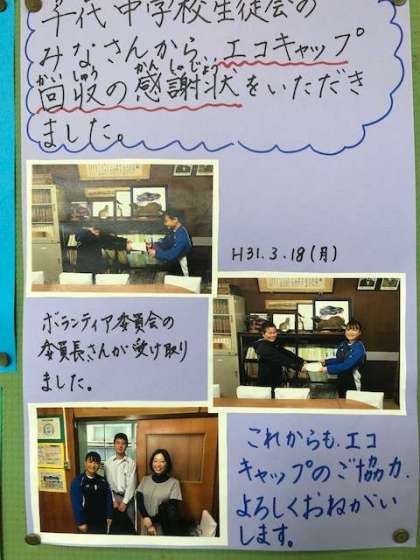 千代中学校生徒会の
みなさんから、エコキャップ
かいしゅう かんしゃじょう
回収の感謝状をいただき
ました。
H31.3.18(月)
ボランティア委員会の
委員長さんが受け取り
ました。
これからも、エコ
キャップのご協力、
よろしくおねがい
します。